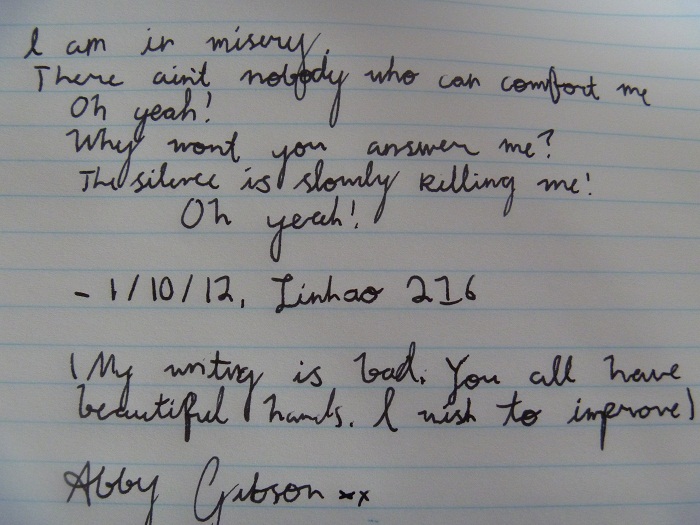 I am in misery.
There ain't nobody who can comfort me
Oh yeah!
Why wont you answer me?
The silence is slowly killing me!
Oh yeah!
- 1/10/12, Linhao 216
(My writing is bad. You all have
beautiful hands. I wish to improve)
Abby Gibson xx